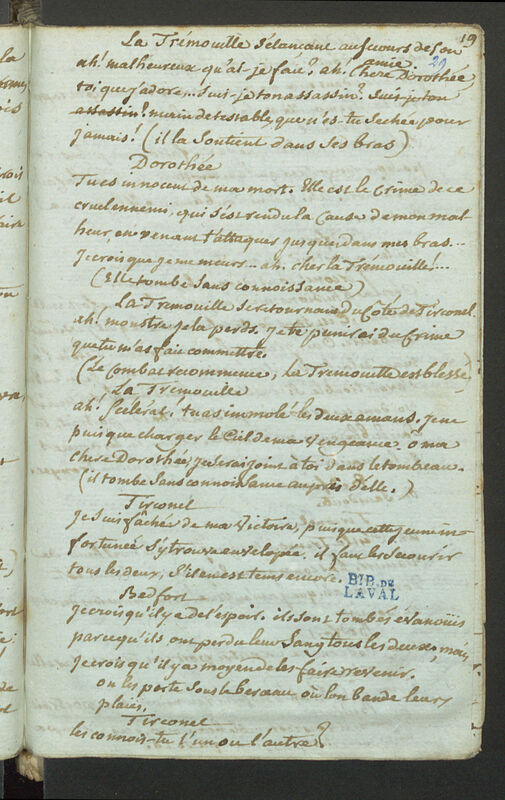 19
29
La Trémouille s'élançant au secours de son
amie.
ah! malheureux qu'ai-je fait? ah. Chere Dorothée,
toi que j'adore... suis-je ton assassin? suis-je ton
assassin? main detestable, que n'es-tu sechée pour
jamais! (il la soutient dans ses bras)
Dorothée
Tu es innocent de ma mort. Elle est le crime de ce
cruel ennemi, qui s'est rendu la cause de mon mal-
heur, en venant t'attaquer jusques dans mes bras...
je crois que je me meurs... ah. cher la Trémouille!...
(Elle tombe sans connoissance)
La Tremouille se retournant du côté de Tirconel.
ah! monstre je la perds. je te punirai du crime
que tu m'as fait commettre.
(Le Combat recommence, la Tremouille est blessé)
La Trémouille
ah! scélérat. tu as immolé les deux amans. je ne
puis que charger le Ciel de ma vengeance. ô ma
chere Dorothée, je serai joint à toi dans le tombeau.
(il tombe sans connoissance auprès d'elle.)
Tirconel
je suis fâchée de ma victoire, puisque cette jeune in-
fortunée s'y trouve envelopée. il faut les secourir
tous les deux, s'il en est tems encore.
BIB. DE
LAVAL
Bedfort
je crois qu'il y a de l'espoir. ils sont tombés evanouis
parce qu'ils ont perdu leur sang tous les deux, mais
je crois qu'il y a moyen de les faire revenir.
on les porte sous le berceau, où l'on bande leurs
plaies.
Tirconel
les connois-tu l'un ou l'autre?